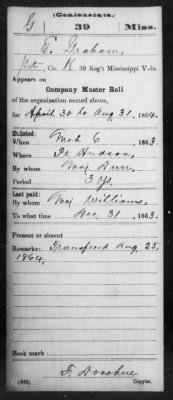 (Confederate.)
G 39 Miss.
E. Graham,
Pvt, Co. K, 39 Reg't Mississippi Vols.
Appears on
Company Muster Roll
of the organization named above,
for April 30 to Aug 31, 1864.
Enlisted:
When Mch 6, 1863.
Where Pt Hudson,
By whom Maj Durr,
Period 3 Ys.
Last paid:
By whom Maj Williams,
To what time Dec 31, 1863.
Present or absent
Remarks: Transferred Aug 25,
1864.
Book mark:
F. Donohue
(642) Copyist.